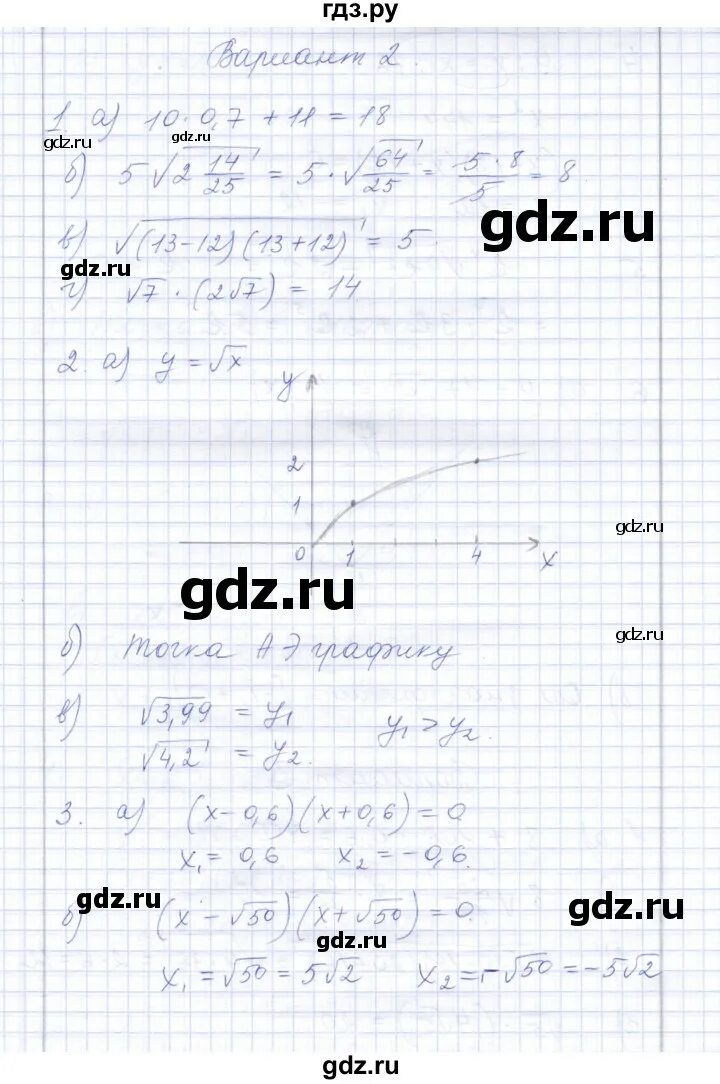 гдз.ру
Вариант 2.
1. а) 10 · 0,7 + 11 = 18
gdz.ru
gdz.ru
б) 5 √(2 14/25) = 5 · √(64/25) = (5 · 8)/5 = 8.
gdz.ru
в) √((13-12)(13+12)) = 5.
gdz.ru
г) √7 · (2√7) = 14
2. а) y = √x
y
2
1
gdz.ru
0 1 4 x
gdz.ru
gdz.ru
б) точка А Э графику
в) √3,99 = y₁
y₁ > y₂.
√4,2 = y₂.
3. а) (x-0,6)(x+0,6) = 0
x₁ = 0,6 x₂ = -0,6.
gdz.ru
gdz.ru
б) (x - √50)(x + √50) = 0.
gdz.ru
x₁ = √50 = 5√2 x₂ = -√50 = -5√2
gdz.ru